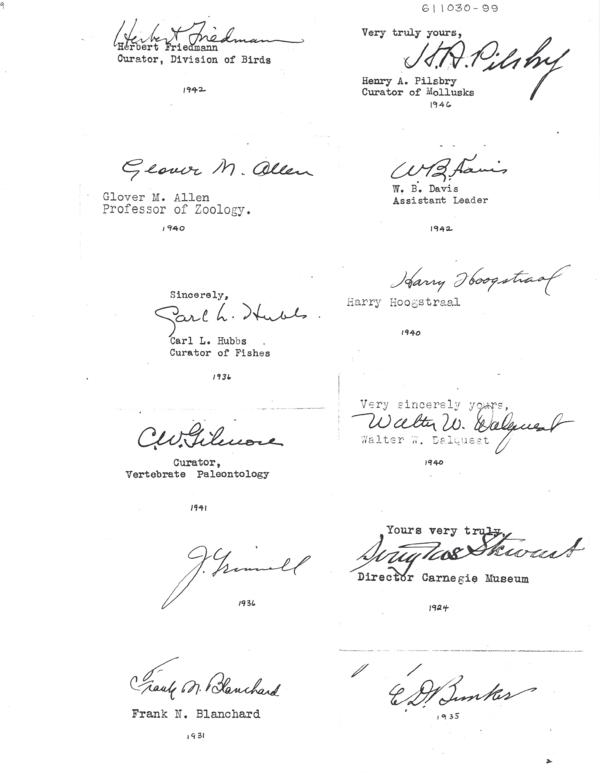 611030-99
Herbert Friedmann
Herbert Friedmann
Curator, Division of Birds
1942
Glover M. Allen
Glover M. Allen
Professor of Zoology.
1940
Sincerely,
Carl L. Hubbs.
Carl L. Hubbs
Curator of Fishes
1936
C.W. Gilmore
Curator,
Vertebrate Paleontology
1941
J. Grinnell
1936
Frank N. Blanchard
Frank N. Blanchard
1931
Very truly yours,
H.A. Pilsbry
Henry A. Pilsbry
Curator of Mollusks
1946
W.B. Davis
W. B. Davis
Assistant Leader
1942
Harry Hoogstraal
Harry Hoogstraal
1940
Very sincerely yours,
Walter W. Dalquest
Walter W. Dalquest
1940
Yours very truly,
Douglas Stewart
Director Carnegie Museum
1924
C.D. Bunker
1935
2